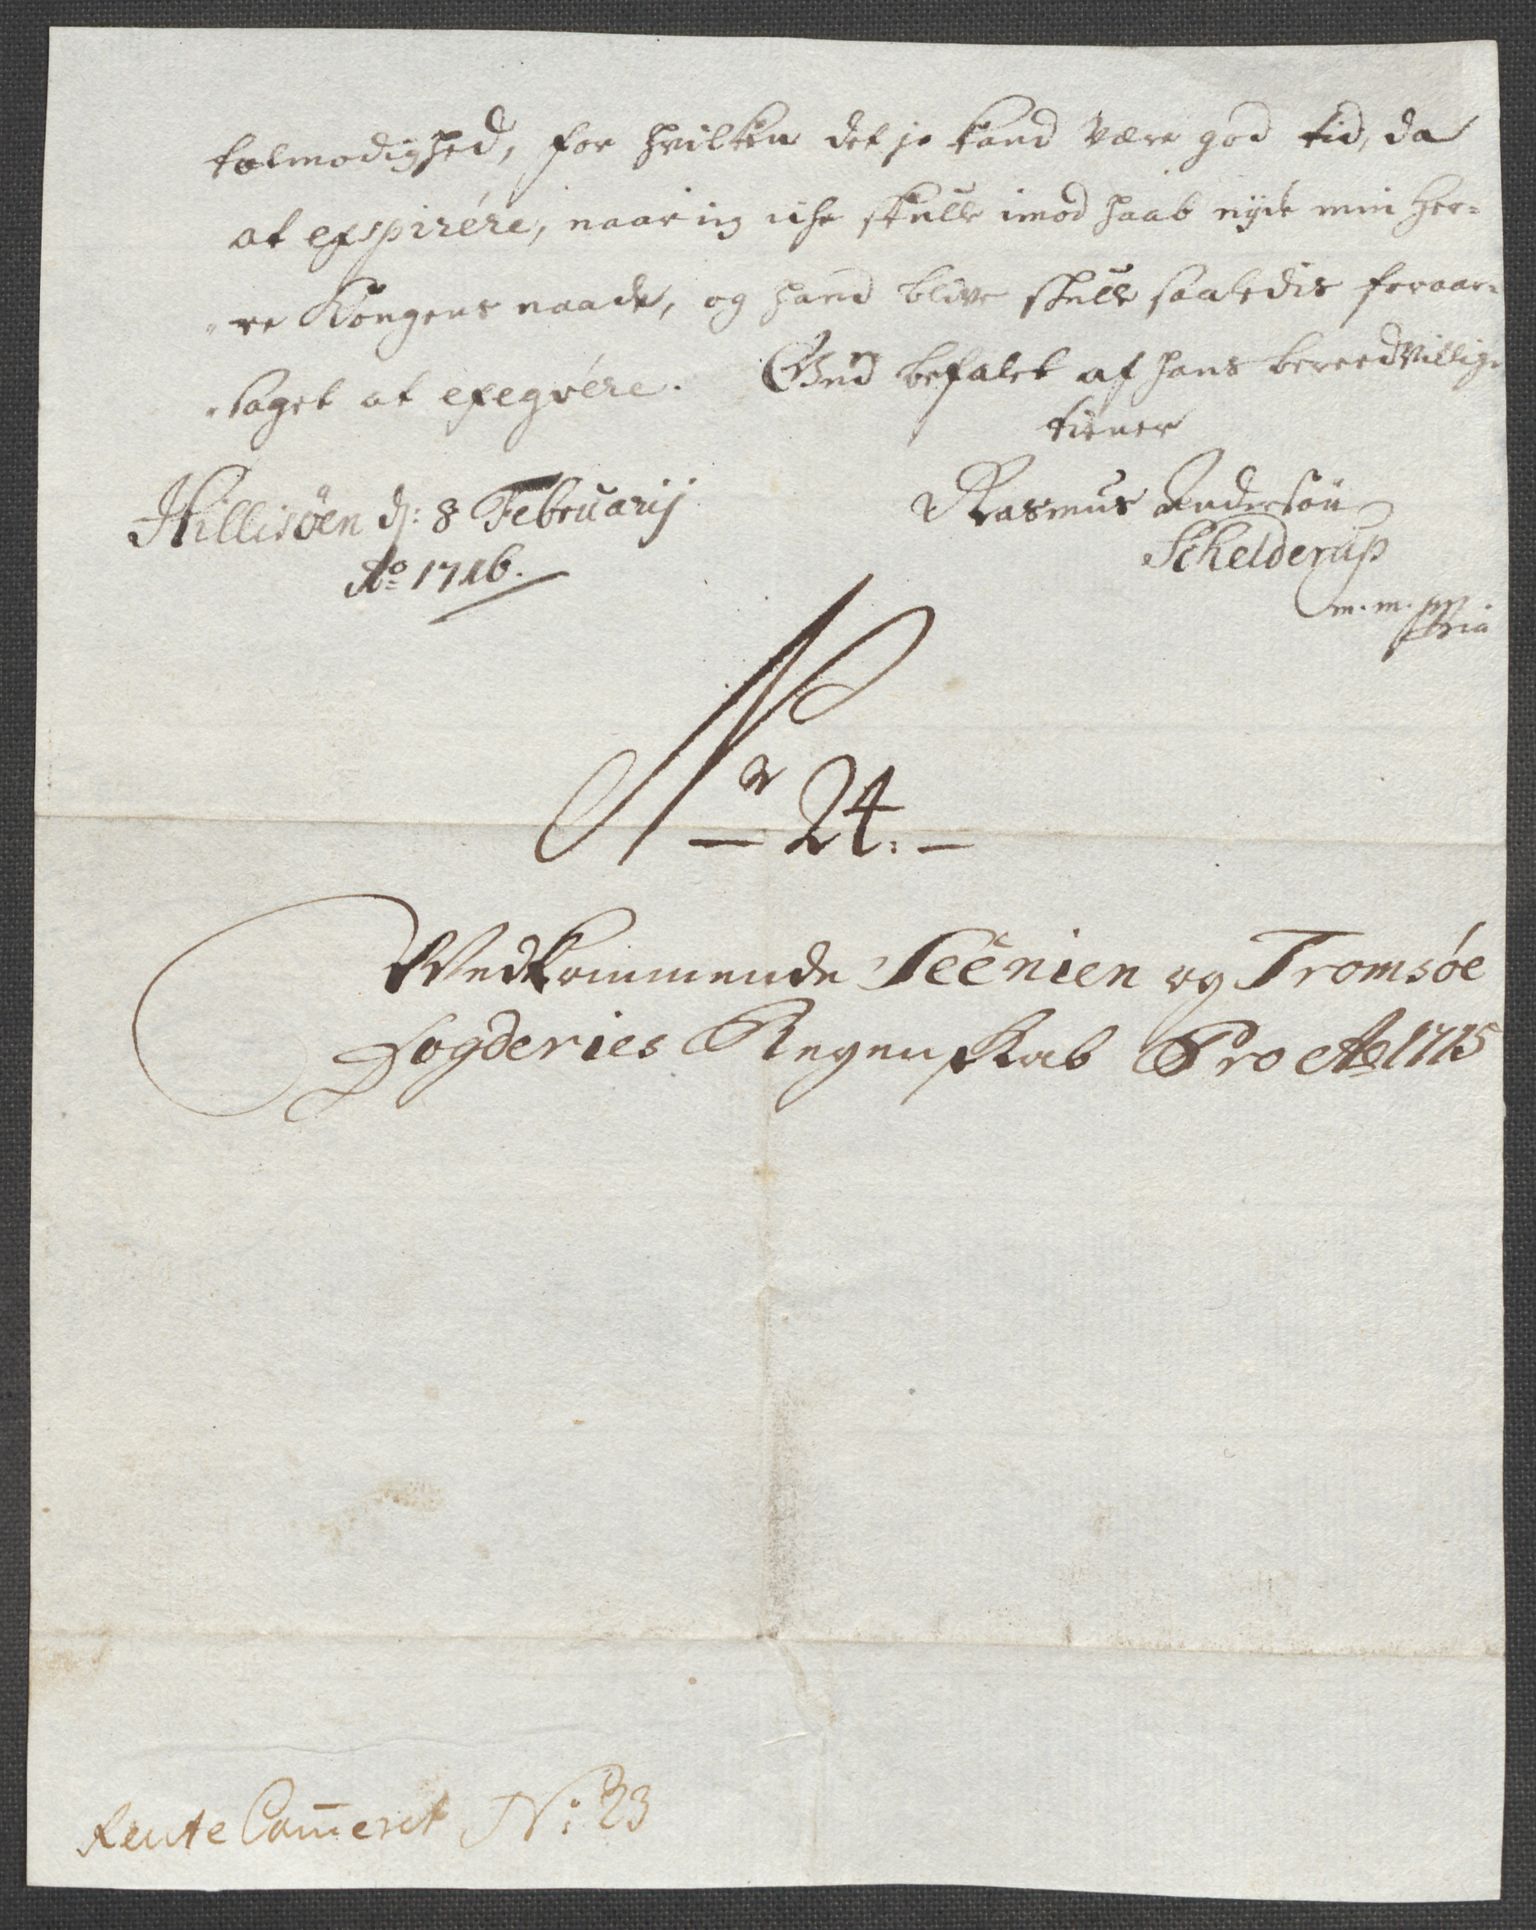 tolmodighed, for hvilken det jo kand være god tid, da
at exspirére, naar ieg iche skulle imod haab nyde min Her-
-re Kongens naade, og hand blive skulle saaledis foraar-
-saget at exeqvére. Gud befalet af hans bereedvillige
tiener
Hillisöen d: 8 Februarij
Ao 1716.
Rasmus Andersön
Schelderup
m. m. ppria
Nr 24.
Vedkommende Seênien og Tromsöe
Fogderies Regenskab Pro Ao 1715
Rente Cam̄eret N: 23